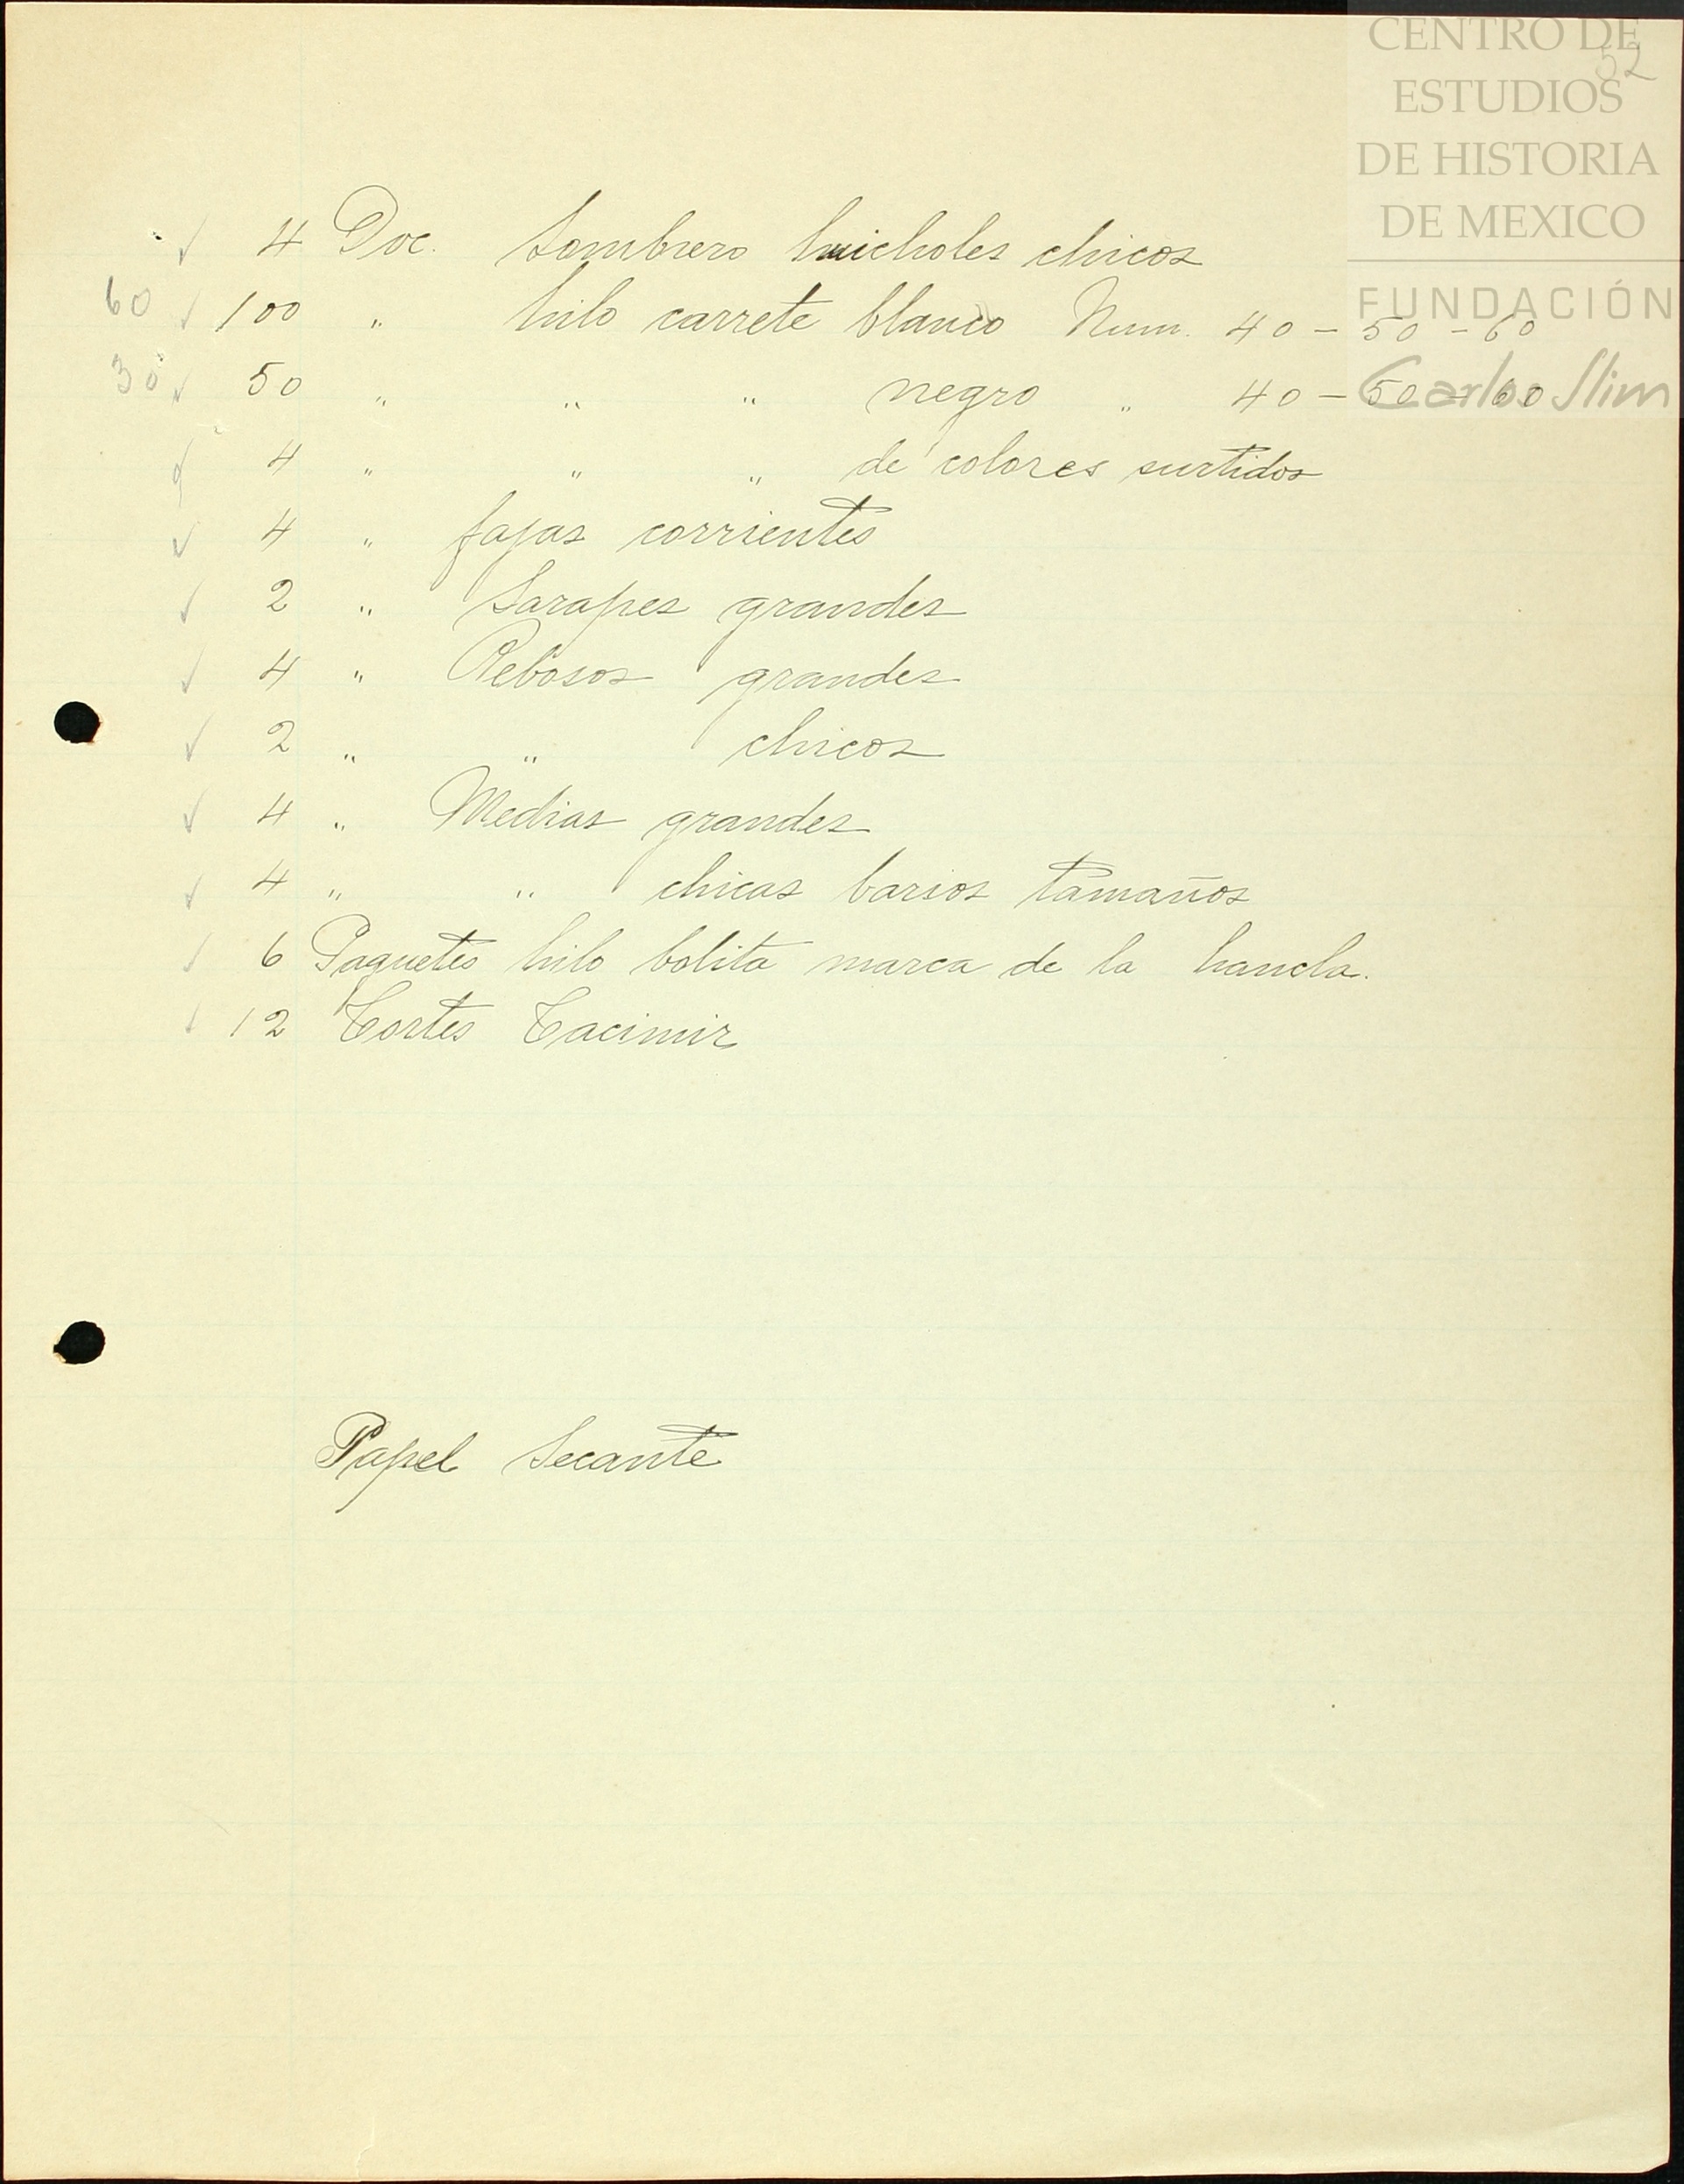 52
CENTRO DE
ESTUDIOS
DE HISTORIA
DE MEXICO
FUNDACIÓN
Carlos Slim
✓ 4 Doc. Sombrero huicholes chicos
60 ✓ 100 " hilo carrete blanco Num. 40 - 50 - 60
30 ✓ 50 " " " negro " 40 - 50 - 60
4 " " " de colores surtidos
✓ 4 " fajas corrientes
✓ 2 " Sarapes grandes
✓ 4 " Rebosos grandes
✓ 2 " " chicos
✓ 4 " Medias grandes
✓ 4 " " chicas barios tamaños
✓ 6 Paquetes hilo bolita marca de la hancla.
✓ 12 Cortes Cacimir
Papel Secante